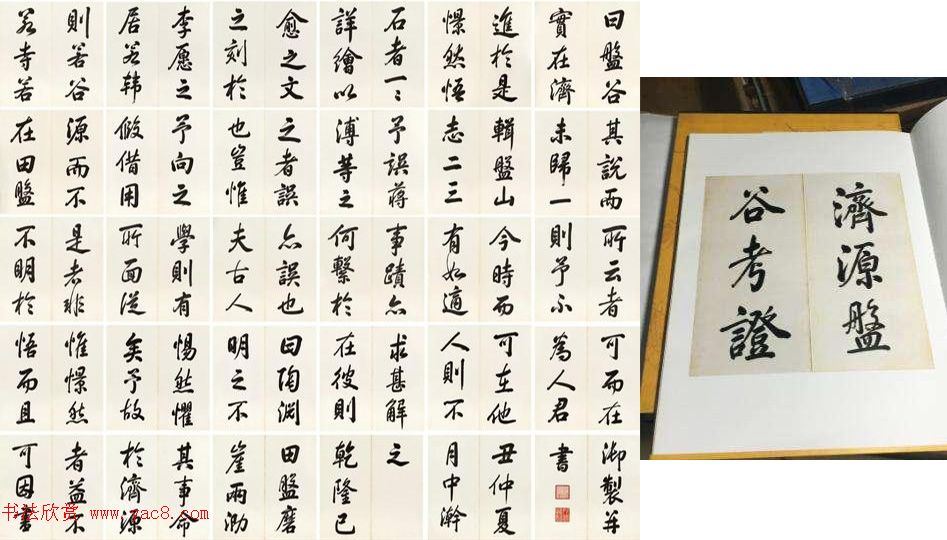 則若谷
若寺若
李愿之
居若韩
愈之文
之刻於
石者一〻
詳繪以
進於是
憬然悟
曰盤谷
實在濟
源而不
在田盤
予向之
假借用
之者誤
也豈惟
予誤蔣
溥等之
輯盤山
志二三
其說而
未歸一
是者非
不明於
學則有
所面從
亦誤也
夫古人
事蹟亦
何繫於
今時而
有如適
所云者
則予不
惟憬然
悟而且
惕然懼
矣予故
曰陶淵
明之不
求甚解
在彼則
可在他
人則不
可而在
為人君
者益不
可因書
其事命
於濟源
田盤磨
崖兩泐
之
乾隆己
丑仲夏
月中澣
御製并
書
濟源盤
谷考證
书法欣赏 www.yac8.com